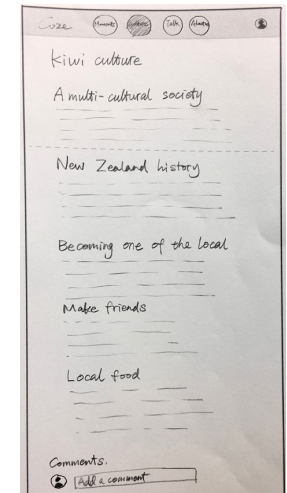 Coze Moments Culture Talk
kiwi culture
A multi-cultural society
New Zealand history
Becoming one of the local
Make friends
Local food
Comments.
Add a comment